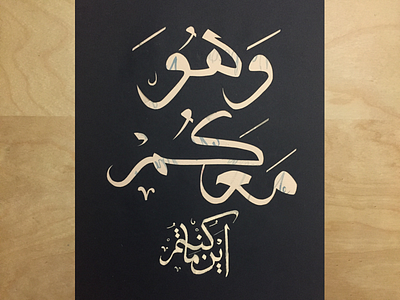 وَهُوَ
مَعَكُمْ
أَيْنَ مَا كُنْتُمْ